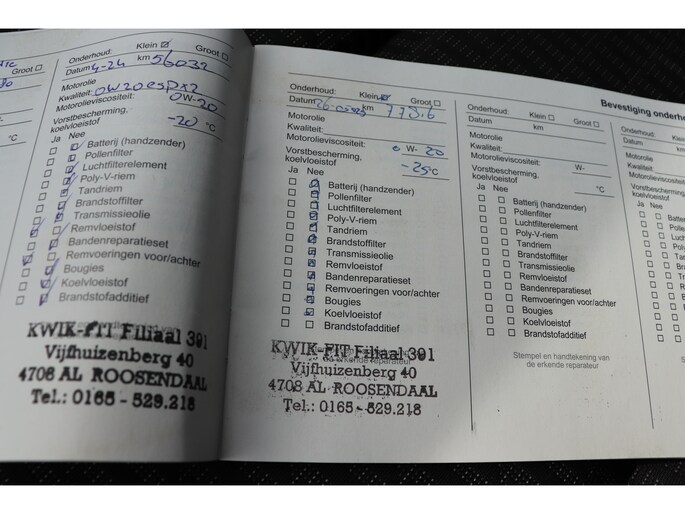 Bevestiging onderho
Groot
°C
Onderhoud: Klein Groot
Datum 4-24 km 56032
Motorolie
Kwaliteit: 0W20espx2
Motorolieviscositeit: 0W-20
Vorstbescherming,
koelvloeistof -20 °C
Ja Nee
Batterij (handzender)
Pollenfilter
Luchtfilterelement
Poly-V-riem
Tandriem
Brandstoffilter
Transmissieolie
Remvloeistof
Bandenreparatieset
Remvoeringen voor/achter
Bougies
Koelvloeistof
Brandstofadditief
KWIK-FIT Filiaal 391
Vijfhuizenberg 40
4708 AL ROOSENDAAL
Tel.: 0165 - 529.218
Onderhoud: Klein Groot
Datum km
Motorolie
Kwaliteit:
Motorolieviscositeit: W- 20
Vorstbescherming,
koelvloeistof -25°C
Ja Nee
Batterij (handzender)
Pollenfilter
Luchtfilterelement
Poly-V-riem
Tandriem
Brandstoffilter
Transmissieolie
Remvloeistof
Bandenreparatieset
Remvoeringen voor/achter
Bougies
Koelvloeistof
Brandstofadditief
KWIK-FIT Filiaal 391
Vijfhuizenberg 40
4708 AL ROOSENDAAL
Tel.: 0165 - 529.218
Onderhoud: Klein Groot
Datum km
Motorolie
Kwaliteit:
Motorolieviscositeit: W-
Vorstbescherming,
koelvloeistof °C
Ja Nee
Batterij (handzender)
Pollenfilter
Luchtfilterelement
Poly-V-riem
Tandriem
Brandstoffilter
Transmissieolie
Remvloeistof
Bandenreparatieset
Remvoeringen voor/achter
Bougies
Koelvloeistof
Brandstofadditief
Stempel en handtekening van
de erkende reparateur
Onderhoud:
Datum
Motorolie
Kwaliteit:
Motorolieviscosit
Vorstbescherming
koelvloeistof
Ja Nee
Batte
Polle
Lucht
Poly-
Tand
Bran
Tran
Rem
Ban
Rem
Bou
Koe
Bra